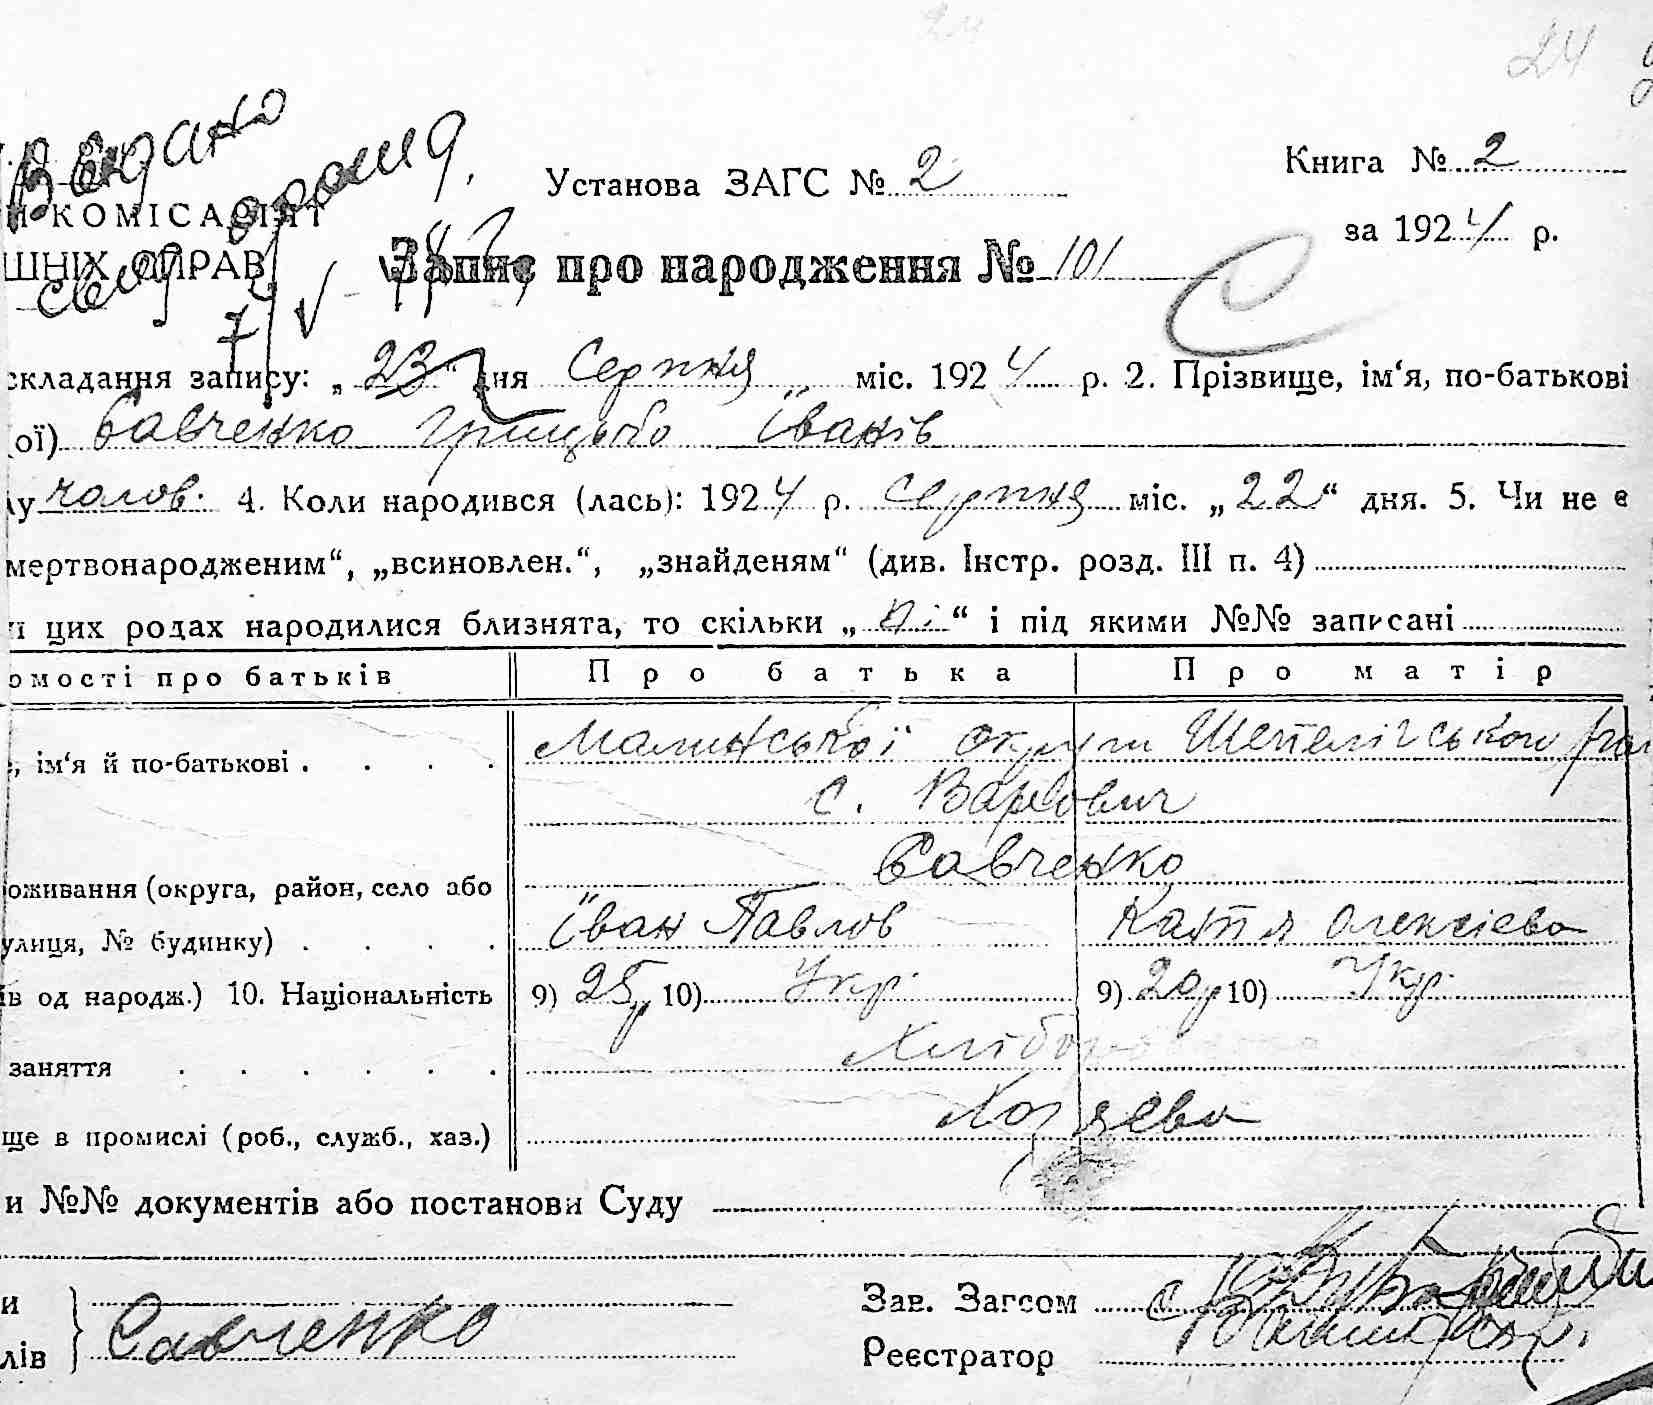 24
24
Видано
Установа ЗАГС № 2
Книга № 2
КОМІСАРІЯТ
за 1924 р.
ШНІХ СПРАВ
Запис про народження № 101
складання запису: „23“ дня Серпня міс. 1924 р. 2. Прізвище, ім‘я, по-батькові
ої) Савченко Грицько Іванів
лу чолов. 4. Коли народився (лась): 1924 р. Серпня міс. „22“ дня. 5. Чи не є
мертвонародженим“, „всиновлен.“, „знайденям“ (див. Інстр. розд. III п. 4)
цих родах народилися близнята, то скільки „ні“ і під якими №№ записані
омості про батьків Про батька Про матір
, ім‘я й по-батькові . . . . Малинської округи Шепелічського
с. Варович
Савченко
оживання (округа, район, село або
улиця, № будинку) . . . . Іван Павлов Катя Олексієва
ів од народж.) 10. Національність 9) 25р 10) Укр. 9) 20р 10) Укр.
заняття . . . . . . Хлібо
ще в промислі (роб., служб., хаз.) Хозяєва
и №№ документів або постанови Суду
и
лів } Савченко
Зав. Загсом
Реєстратор